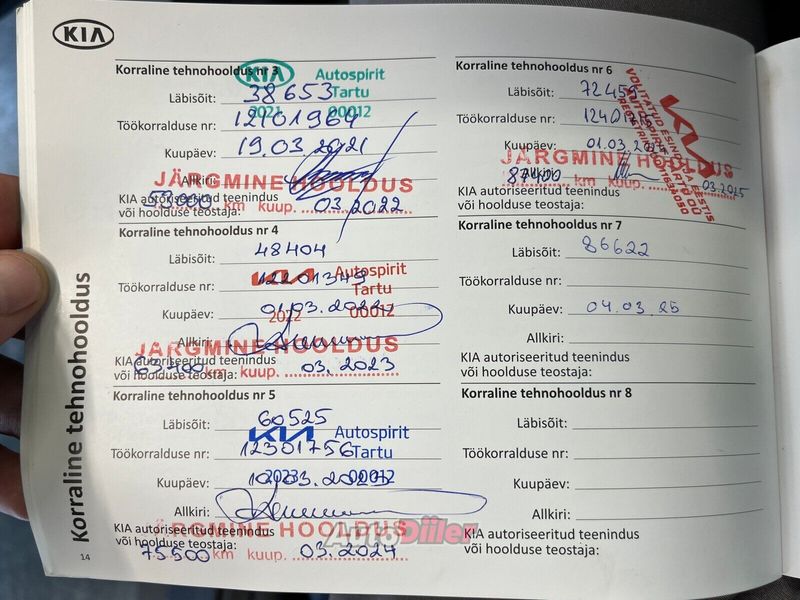 KIA
Korraline tehnohooldus
Korraline tehnohooldus nr 3
KIA Autospirit
Tartu
2021 00012
Läbisõit: 38653
Töökorralduse nr: 12101964
Kuupäev: 19.03.2021
Allkiri:
JÄRGMINE HOOLDUS
KIA autoriseeritud teenindus
või hoolduse teostaja:
53000 km kuup. 03.2022
Korraline tehnohooldus nr 4
Läbisõit: 48404
KIA Autospirit
Tartu
2022 00012
Töökorralduse nr: 12201349
Kuupäev: 01.03.2022
Allkiri:
JÄRGMINE HOOLDUS
KIA autoriseeritud teenindus
või hoolduse teostaja:
63400 km kuup. 03.2023
Korraline tehnohooldus nr 5
Läbisõit: 60525
KIA Autospirit
Tartu
2023 00012
Töökorralduse nr: 12301756
Kuupäev:
Allkiri:
JÄRGMINE HOOLDUS
KIA autoriseeritud teenindus
või hoolduse teostaja:
75500 km kuup. 03.2024
14
Korraline tehnohooldus nr 6
Läbisõit:
Töökorralduse nr:
Kuupäev:
KIA
VOLITATUD ESINDAJA EESTIS
AUTOSPIRIT TARTU OÜ
JÄRGMINE HOOLDUS
Allkiri:
87400 km kuup. 03.2025
KIA autoriseeritud teenindus
või hoolduse teostaja:
Korraline tehnohooldus nr 7
Läbisõit: 86622
Töökorralduse nr:
Kuupäev: 04.03.25
Allkiri:
KIA autoriseeritud teenindus
või hoolduse teostaja:
Korraline tehnohooldus nr 8
Läbisõit:
Töökorralduse nr:
Kuupäev:
Allkiri:
KIA autoriseeritud teenindus
või hoolduse teostaja:
AutoDiiler